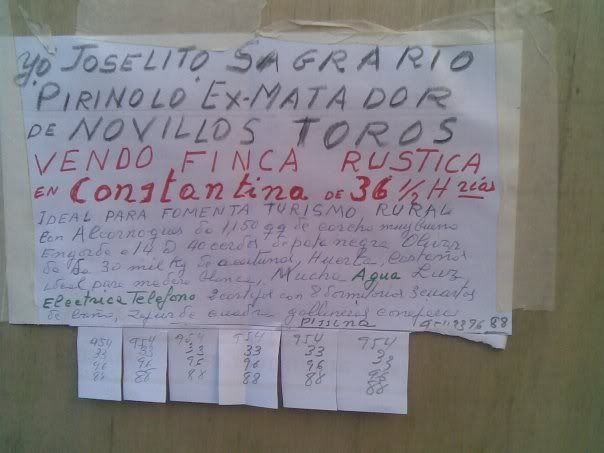 Yo JOSELITO SAGRARIO
PIRINOLO EX-MATADOR
DE NOVILLOS TOROS
VENDO FINCA RUSTICA
EN Constantina DE 36 1/2 H
IDEAL PARA FOMENTA TURISMO RURAL
Con Alcornoques de 1150 qq de corcho muy bueno
Engorde 40 cerdos de pata negra
de 30 mil Kg de aceitunas, Huerta, castaños
ideal para madera blanca, Mucha Agua Luz
Electrica Telefono 2 cortijos con 8 dormitorios 3 cuartos
de baño, de cuadra gallineros
Pissina 88
954 954 954 954 954 954
33 33 33 33 33 33
96 96 96 96 96 96
88 88 88 88 88 88